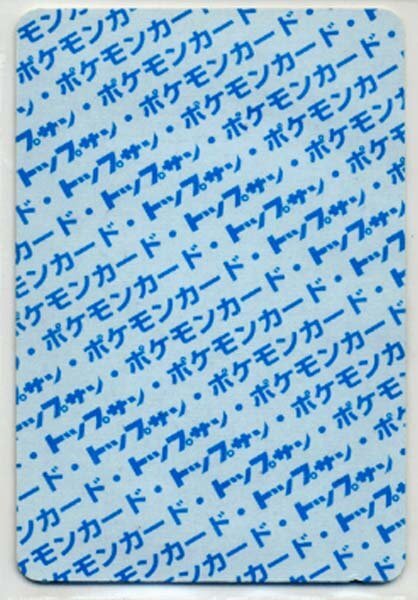 ンカード・
ポケモンカード・
プサン・ポケモンカード・
トップサン・ポケモンカード・
ド・トップサン・ポケモンカード・
カード・トップサン・ポケモンカード
ンカード・トップサン・ポケモン
ケモンカード・トップサン・ポケ
・ポケモンカード・トップサン・
サン・ポケモンカード・トップサン
トップサン・ポケモンカード・トップ
・トップサン・ポケモンカード・
ード・トップサン・ポケモンカード
ンカード・トップサン・ポケモン
ケモンカード・トップサン・ポケ
ポケモンカード・トップサン
カード・トップ